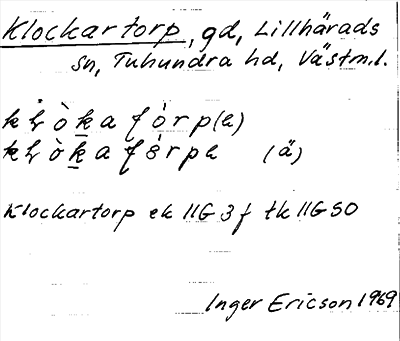 Klockartorp, gd, Lillhärads
sn, Tuhundra hd, Västm.l.
(ä)
Klockartorp ek 11G 3f tk 11G SO
Inger Ericson 1969